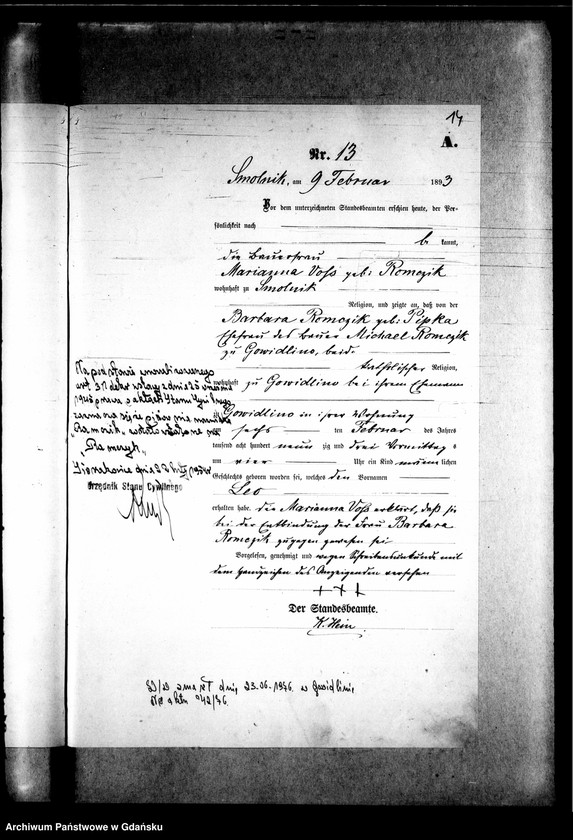 14
A.
Nr. 13
Smolnik, am 9 Februar 1893
Vor dem unterzeichneten Standesbeamten erschien heute, der Per-
sönlichkeit nach
be kannt,
die Bauerfrau
Marianna Voss geb: Romczik
wohnhaft zu Smolnik
Religion, und zeigte an, daß von der
Barbara Romczik geb: Pipka
Ehefrau des Bauer Michael Romczik
zu Gowidlino, beide
katholischer Religion,
wohnhaft zu Gowidlino bei ihrem Ehemann
Gowidlino in ihrer Wohnung
sechs ten Februar des Jahres
tausend acht hundert neun zig und drei Vormittag s
um vier Uhr ein Kind männlichen
Geschlechts geboren worden sei, welches den Vornamen
Leo
erhalten habe. die Marianna Voß erklärt, daß sie
bei der Entbindung der Frau Barbara
Romczik zugegen gewesen sei
Vorgelesen, genehmigt und wegen Schreibensunkunde mit
dem Handzeichen des Anzeigenden versehen
+ + +
Der Standesbeamte.
K. Hein
Na podstawie
art.
1945
"Romczik"
"Ramczyk"
Sierakowice dnia
Urzędnik Stanu Cywilnego
zmarł dnia 23.06.1976. w Gowidlinie
Nr aktu 42/76.
Archiwum Państwowe w Gdańsku